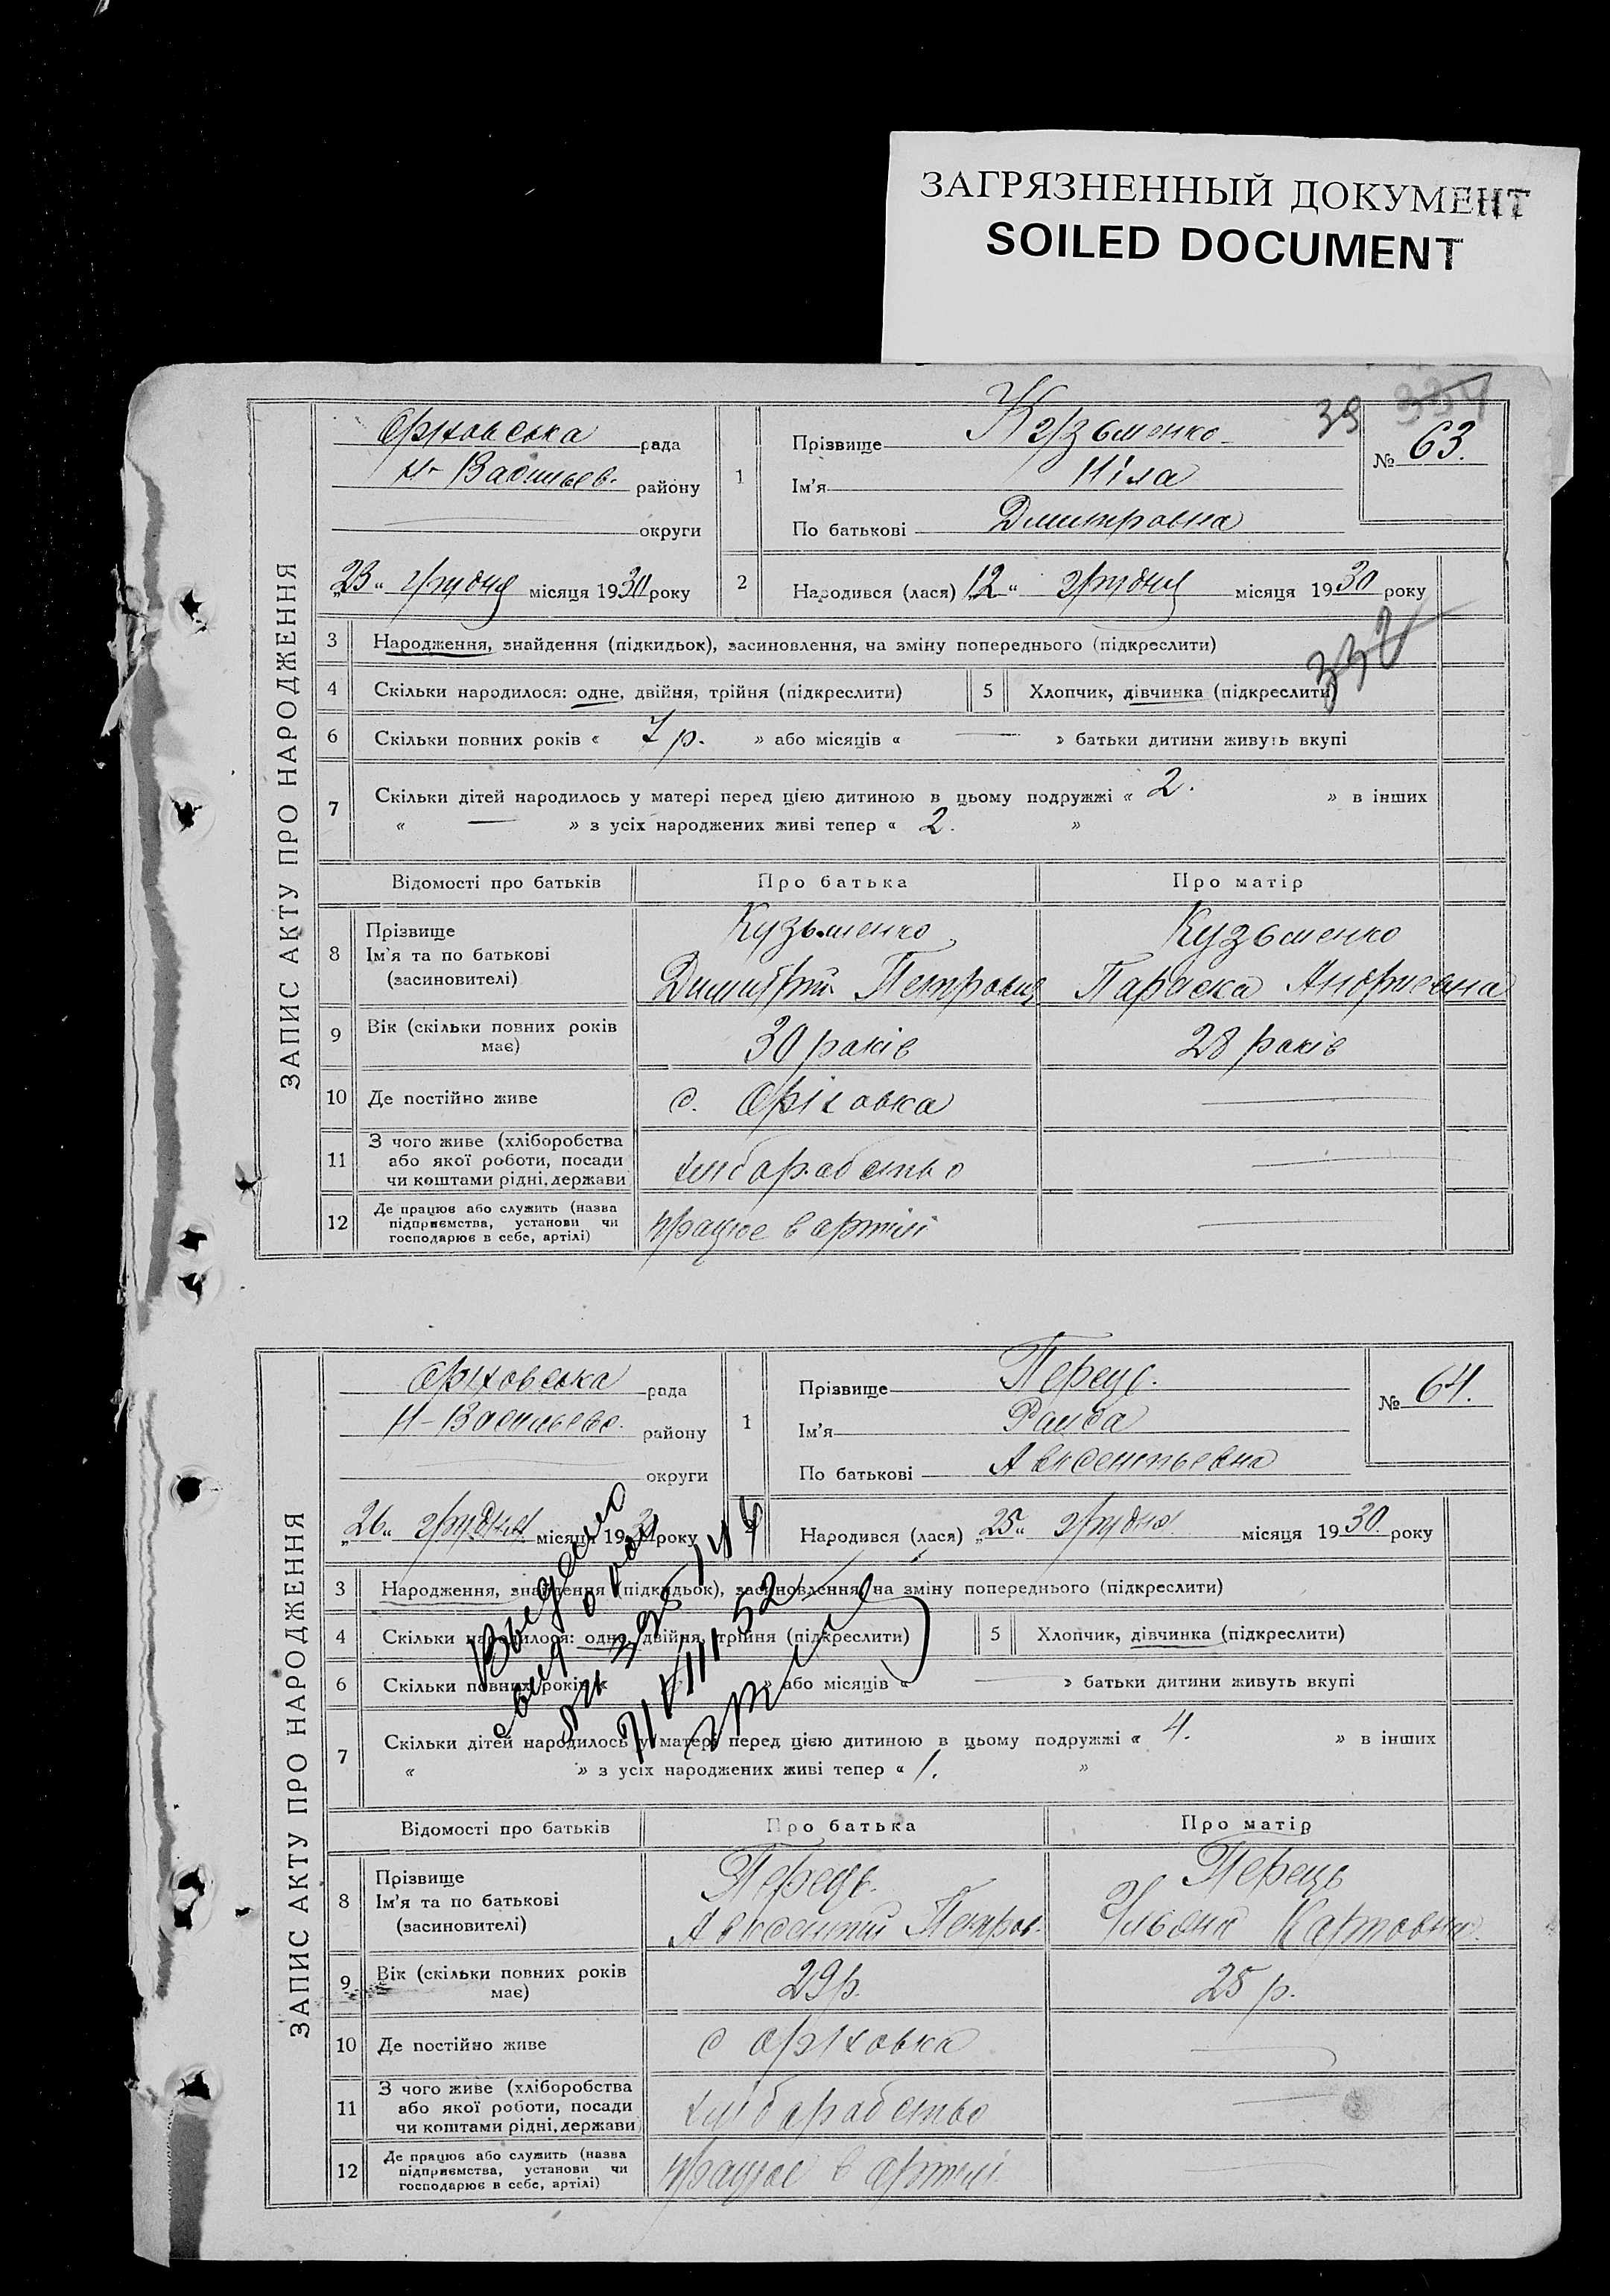 ЗАГРЯЗНЕННЫЙ ДОКУМЕНТ
SOILED DOCUMENT
39 334
ЗАПИС АКТУ ПРО НАРОДЖЕННЯ
Оріховська рада
Н-Васильев. району
округи
„23“ грудня місяця 1930 року
1
Прізвище Кузьменко
Ім'я Ніла
По батькові Дмитровна
№ 63.
2
Народився (лася) 12“ грудня місяця 1930 року
3 Народження, знайдення (підкидьок), засиновлення, на зміну попереднього (підкреслити)
332
4 Скільки народилося: одне, двійня, трійня (підкреслити)
5 Хлопчик, дівчинка (підкреслити)
6 Скільки повних років « 7 р. » або місяців « — » батьки дитини живуть вкупі
7 Скільки дітей народилось у матері перед цією дитиною в цьому подружжі « 2. » в інших
« — » з усіх народжених живі тепер « 2. »
Відомості про батьків Про батька Про матір
8 Прізвище
Ім'я та по батькові
(засиновителі)
Кузьменко
Димитрій Петрович
Кузьменко
Параска Андриевна
9 Вік (скільки повних років
має)
30 років
28 років
10 Де постійно живе
с. Оріховка
11 З чого живе (хліборобства
або якої роботи, посади
чи коштами рідні, держави
хліборобство
12 Де працює або служить (назва
підприємства, установи чи
господарює в себе, артілі)
працює в артілі
ЗАПИС АКТУ ПРО НАРОДЖЕННЯ
Оріховська рада
Н-Васильевс. району
округи
„26“ грудня місяця 1930 року
1
Прізвище Перець.
Ім'я Раиса
По батькові Авксентьевна
№ 64.
Народився (лася) „25“ грудня місяця 1930. року
3 Народження, знайдення (підкидьок), засиновлення, на зміну попереднього (підкреслити)
4 Скільки народилося: одне, двійня, трійня (підкреслити)
5 Хлопчик, дівчинка (підкреслити)
6 Скільки повних років « » або місяців « — » батьки дитини живуть вкупі
7 Скільки дітей народилось у матері перед цією дитиною в цьому подружжі « 4. » в інших
« » з усіх народжених живі тепер « 1. »
Выдано
Відомості про батьків Про батька Про матір
8 Прізвище
Ім'я та по батькові
(засиновителі)
Перець.
Авксентий Петров.
Перець
Ульяна Карповна.
9 Вік (скільки повних років
має)
29 р.
25 р.
10 Де постійно живе
с Оріховка
11 З чого живе (хліборобства
або якої роботи, посади
чи коштами рідні, держави
хліборобство
12 Де працює або служить (назва
підприємства, установи чи
господарює в себе, артілі)
працює в артілі